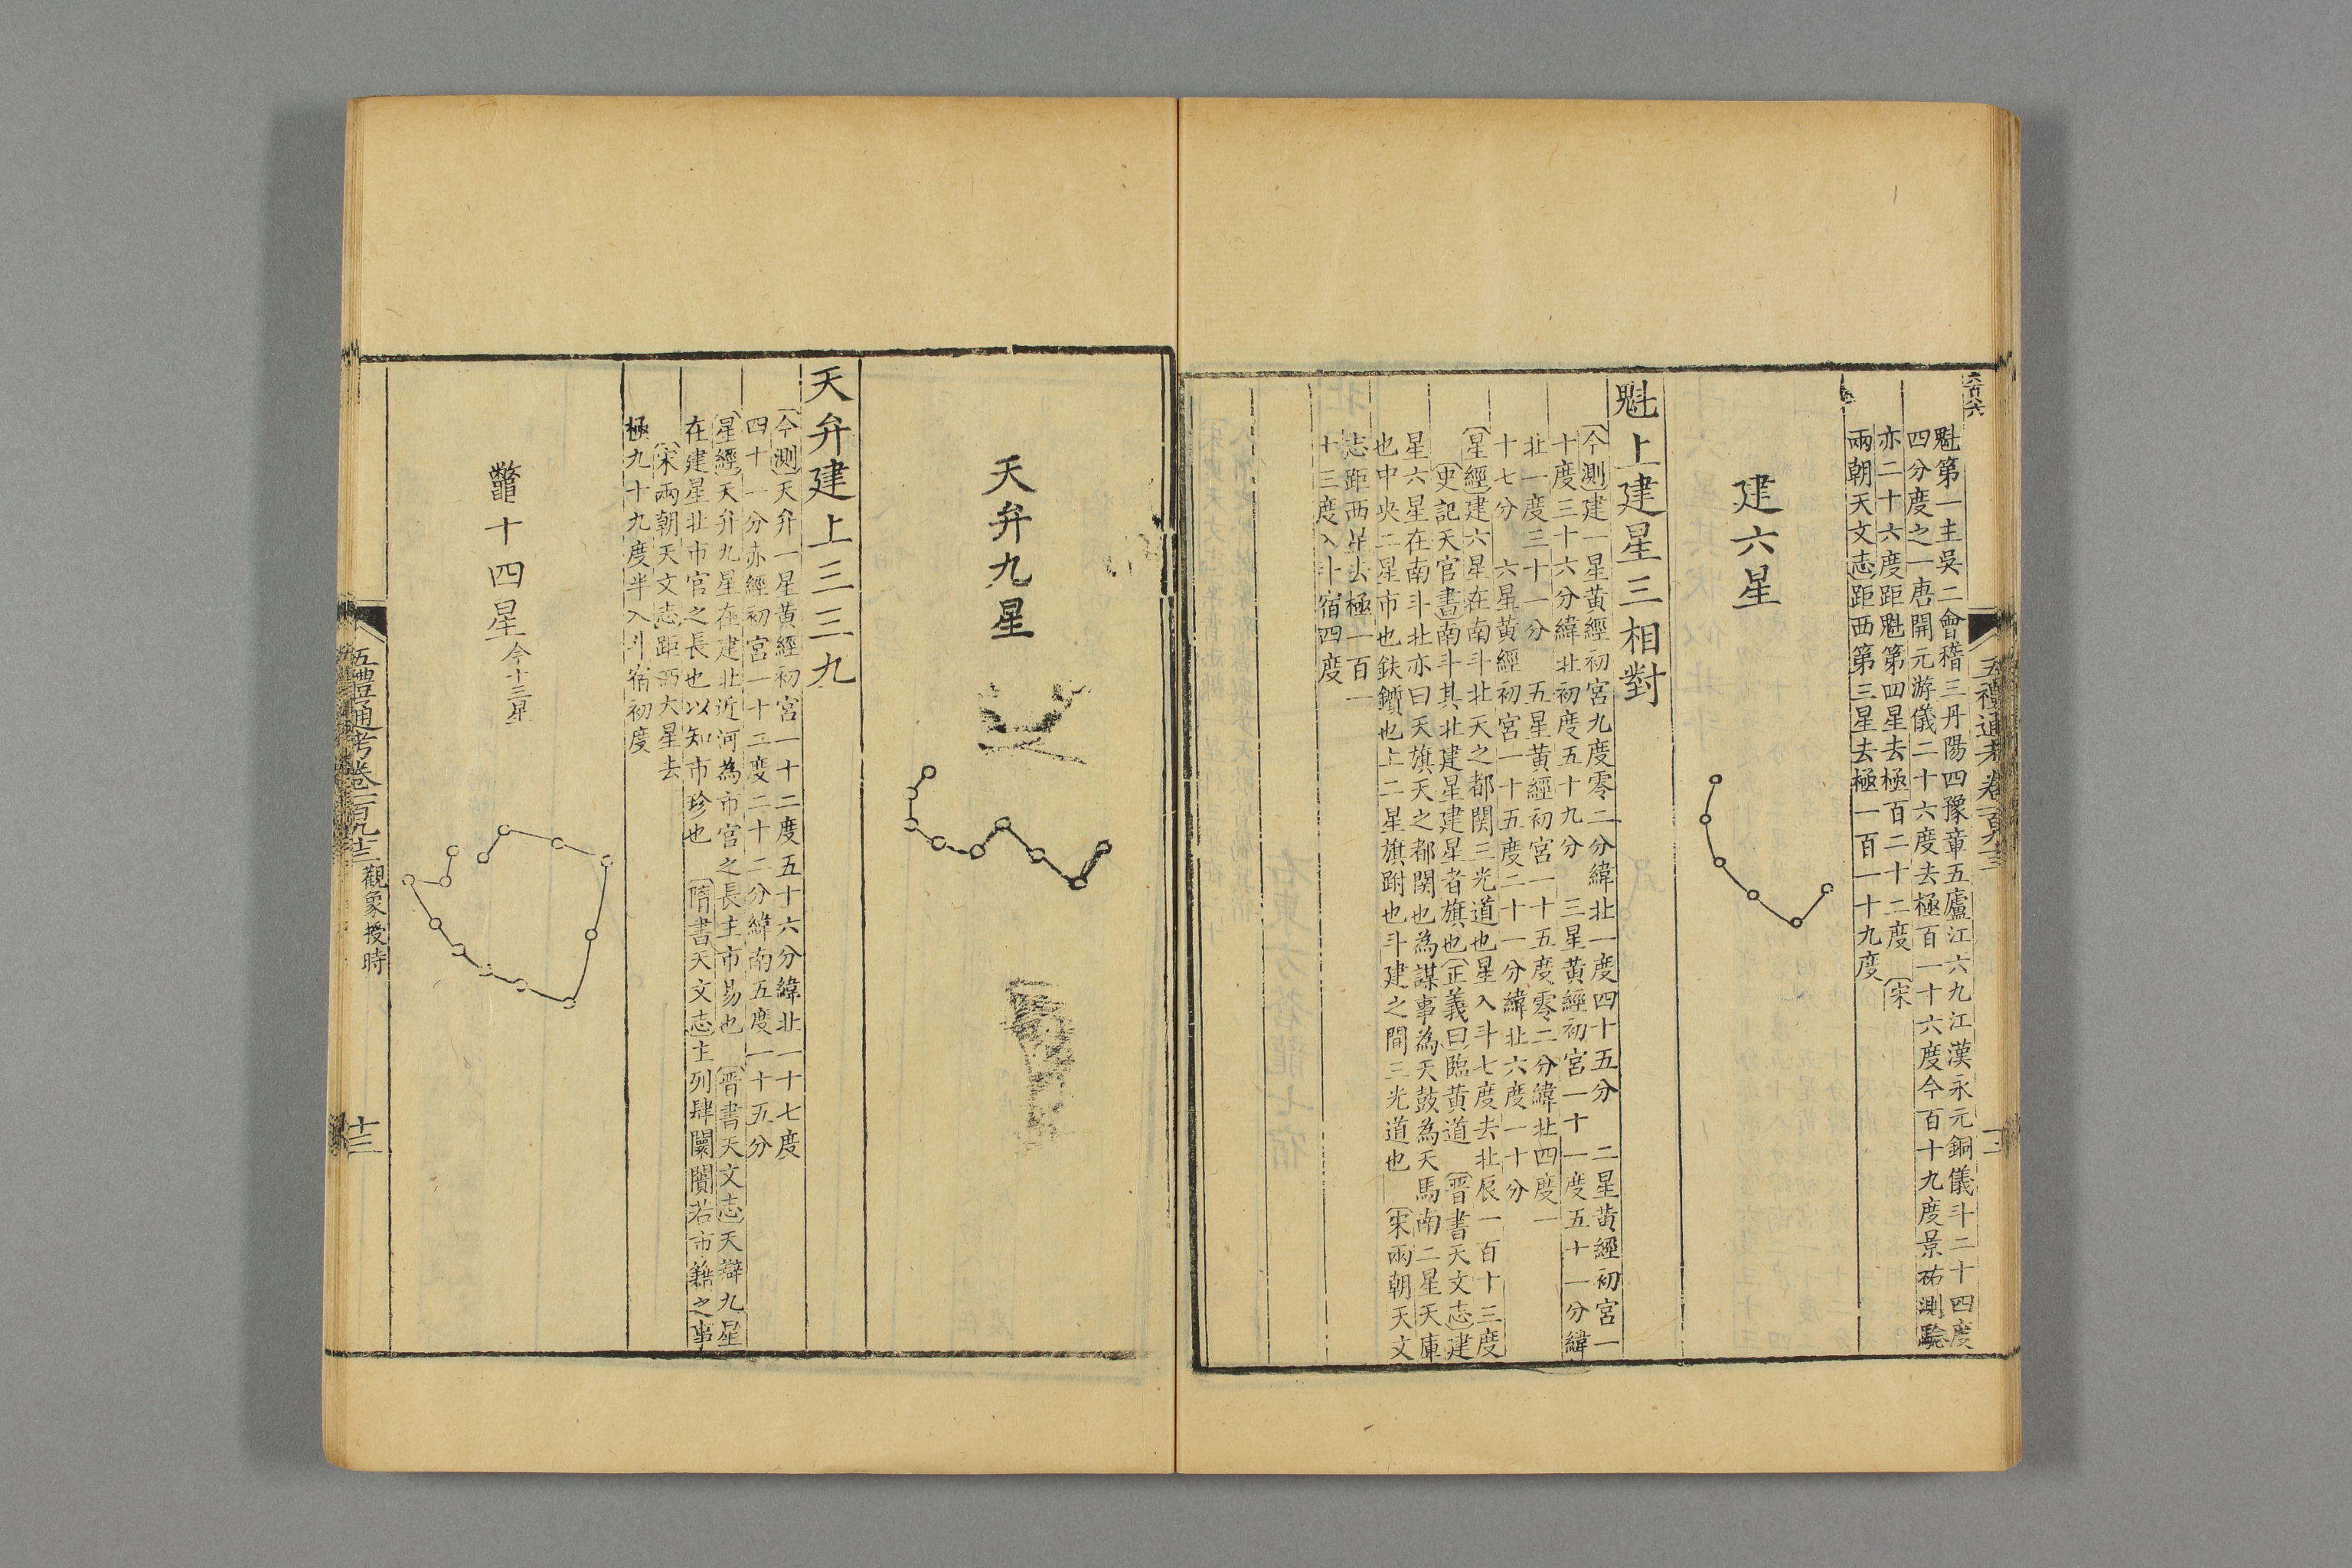 六百六
魁第一主吳二會稽三丹陽四豫章五廬江六九江漢永元銅儀斗二十四度
四分度之一唐開元游儀二十六度去極百一十六度今百十九度景祐測驗
亦二十六度距魁第四星去極百二十二度〔宋
兩朝天文志〕距西第三星去極一百一十九度
建六星
魁上建星三相對
〔今測〕建一星黃經初宮九度零二分緯北一度四十五分　二星黃經初宮一
十度三十六分緯北初度五十九分　三星黃經初宮一十一度五十一分緯
北一度三十一分　五星黃經初宮一十五度零二分緯北四度一
十七分　六星黃經初宮一十五度二十一分緯北六度一十分
〔星經〕建六星在南斗北天之都關三光道也星入斗七度去北辰一百十三度
〔史記天官書〕南斗其北建星建星者旗也〔正義曰〕臨黃道　〔晉書天文志〕建
星六星在南斗北亦曰天旗天之都關也為謀事為天鼓為天馬南二星天庫
也中央二星市也鈇鑕也上二星旗跗也斗建之間三光道也　〔宋兩朝天文
志〕距西星去極一百一
十三度入斗宿四度
五禮通考卷一百九十三
天弁九星
天弁建上三三九
〔今測〕天弁一星黃經初宮一十二度五十六分緯北一十七度
四十一分赤經初宮一十二度二十二分緯南五度一十五分
〔星經〕天弁九星在建北近河為市官之長主市易也　〔晉書天文志〕天辯九星
在建星北市官之長也以知市珍也　〔隋書天文志〕主列肆闤闠若市籍之事
〔宋兩朝天文志〕距西大星去
極九十九度半入斗宿初度
鼈十四星今十三星
五禮通考卷一百九十三 觀象授時
十二